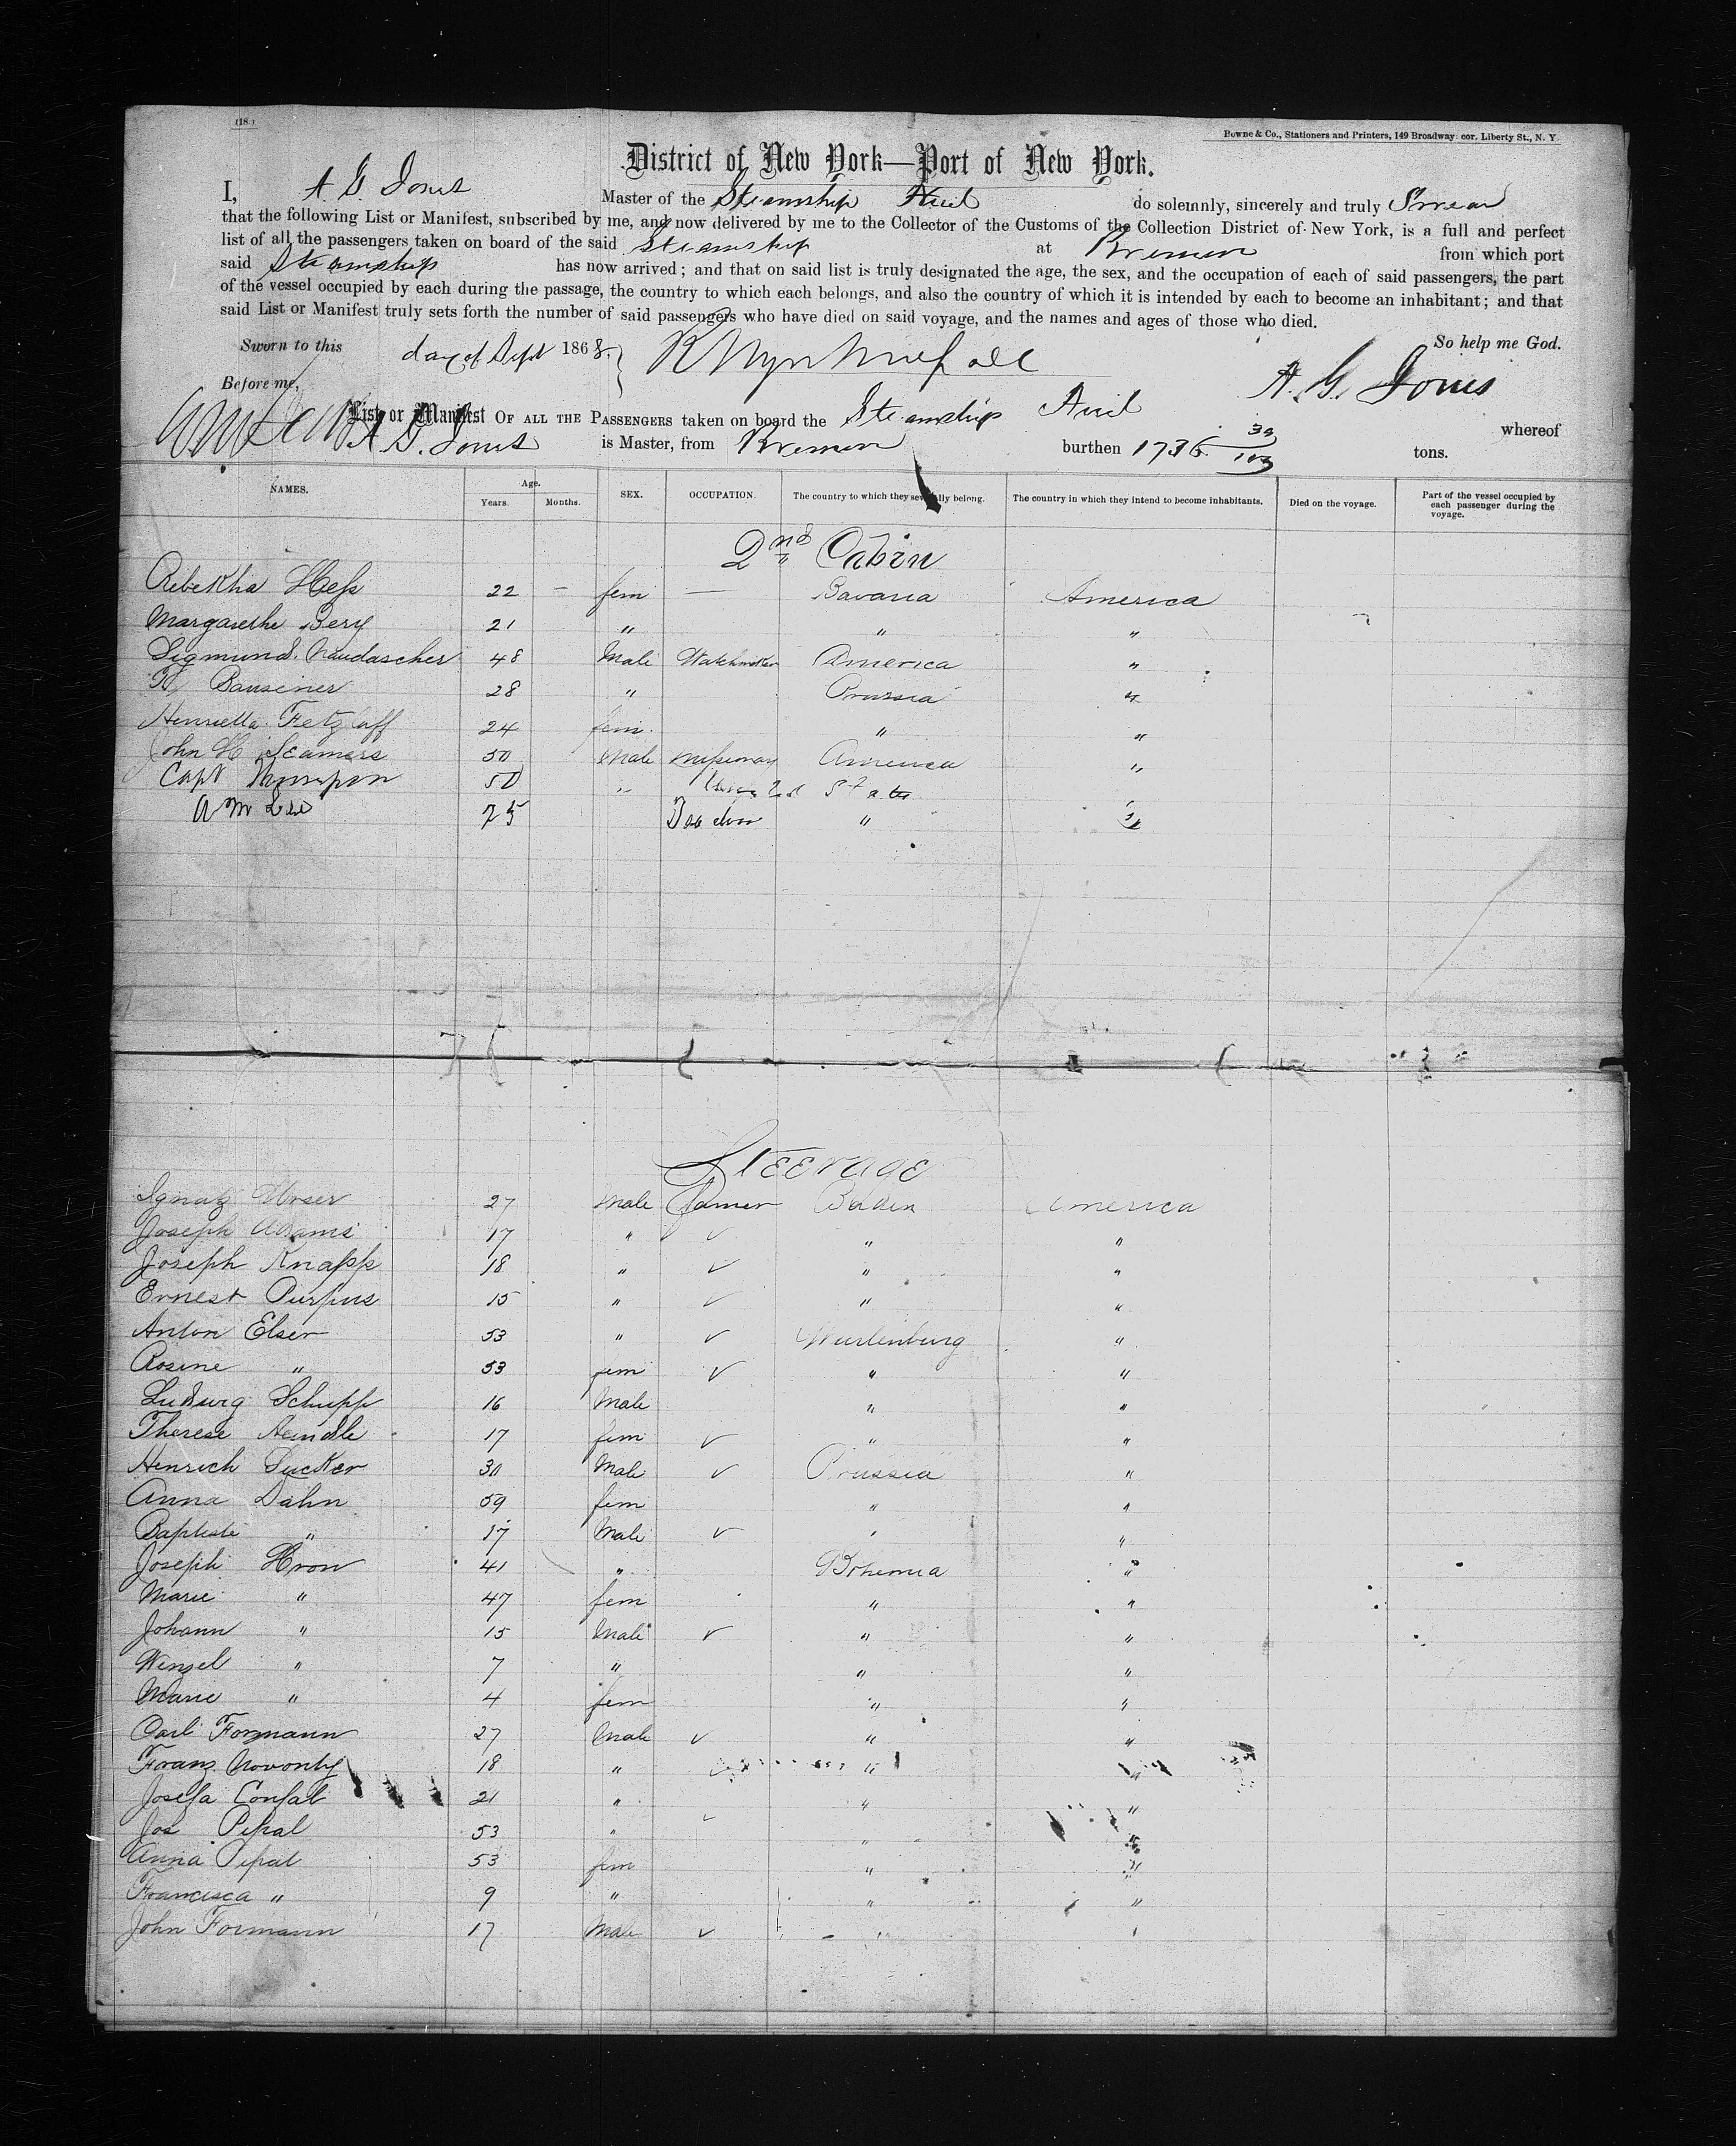 (18.)
Bowne & Co., Stationers and Printers, 149 Broadway cor. Liberty St., N. Y.
District of New York—Port of New York.
I, A. G. Jones Master of the Steamship do solemnly, sincerely and truly Swear
that the following List or Manifest, subscribed by me, and now delivered by me to the Collector of the Customs of the Collection District of New York, is a full and perfect
list of all the passengers taken on board of the said Steamship at Bremen from which port
said Steamship has now arrived; and that on said list is truly designated the age, the sex, and the occupation of each of said passengers, the part
of the vessel occupied by each during the passage, the country to which each belongs, and also the country of which it is intended by each to become an inhabitant; and that
said List or Manifest truly sets forth the number of said passengers who have died on said voyage, and the names and ages of those who died.
Sworn to this day of Sept 1868. So help me God.
Before me, A. G. Jones
List or Manifest OF ALL THE PASSENGERS taken on board the Steamship whereof
A G. Jones is Master, from Bremen burthen 1736 tons.
NAMES. Age. Years. Months. SEX. OCCUPATION. The country to which they severally belong. The country in which they intend to become inhabitants. Died on the voyage. Part of the vessel occupied by each passenger during the voyage.
2nd Cabin
Rebekha Hess 22 — fem — Bavaria America
Margarethe Berg 21 " " "
Sigmund Naudascher 48 Male Watchmaker America "
Bauseiner 28 " Prussia "
Henriette Fetzlaff 24 fem. " "
John H Seamers 50 Male Missionary America "
Capt 50 " States
A M Lee 75 "
Steerage
Ignatz Moser 27 Male Farmer Baden America
Joseph Adams 17 " ✓ " "
Joseph Knapp 18 " ✓ " "
Ernest Purpus 15 " ✓ " "
Anton Elser 53 " ✓ Wurtenburg "
Rosine " 53 fem ✓ " "
Ludwig Schupp 16 Male " "
Therese Aeindle 17 fem ✓ " "
Henrich Sucker 30 Male ✓ Prussia "
Anna Dahn 59 fem " "
Baptiste " 17 Male ✓ " "
Joseph Hron 41 " Bohemia "
Marie " 47 fem " "
Johann " 15 Male ✓ " "
Wenzel " 7 " " "
Marie " 4 fem " "
Carl Formann 27 Male ✓ " "
Franz Novonty 18 " ✓ " "
Josefa Confal 21 " " "
Jos Pipal 53 " ✓ " "
Anna Pipal 53 fem " "
Francisca " 9 " " "
John Formann 17 Male ✓ " "